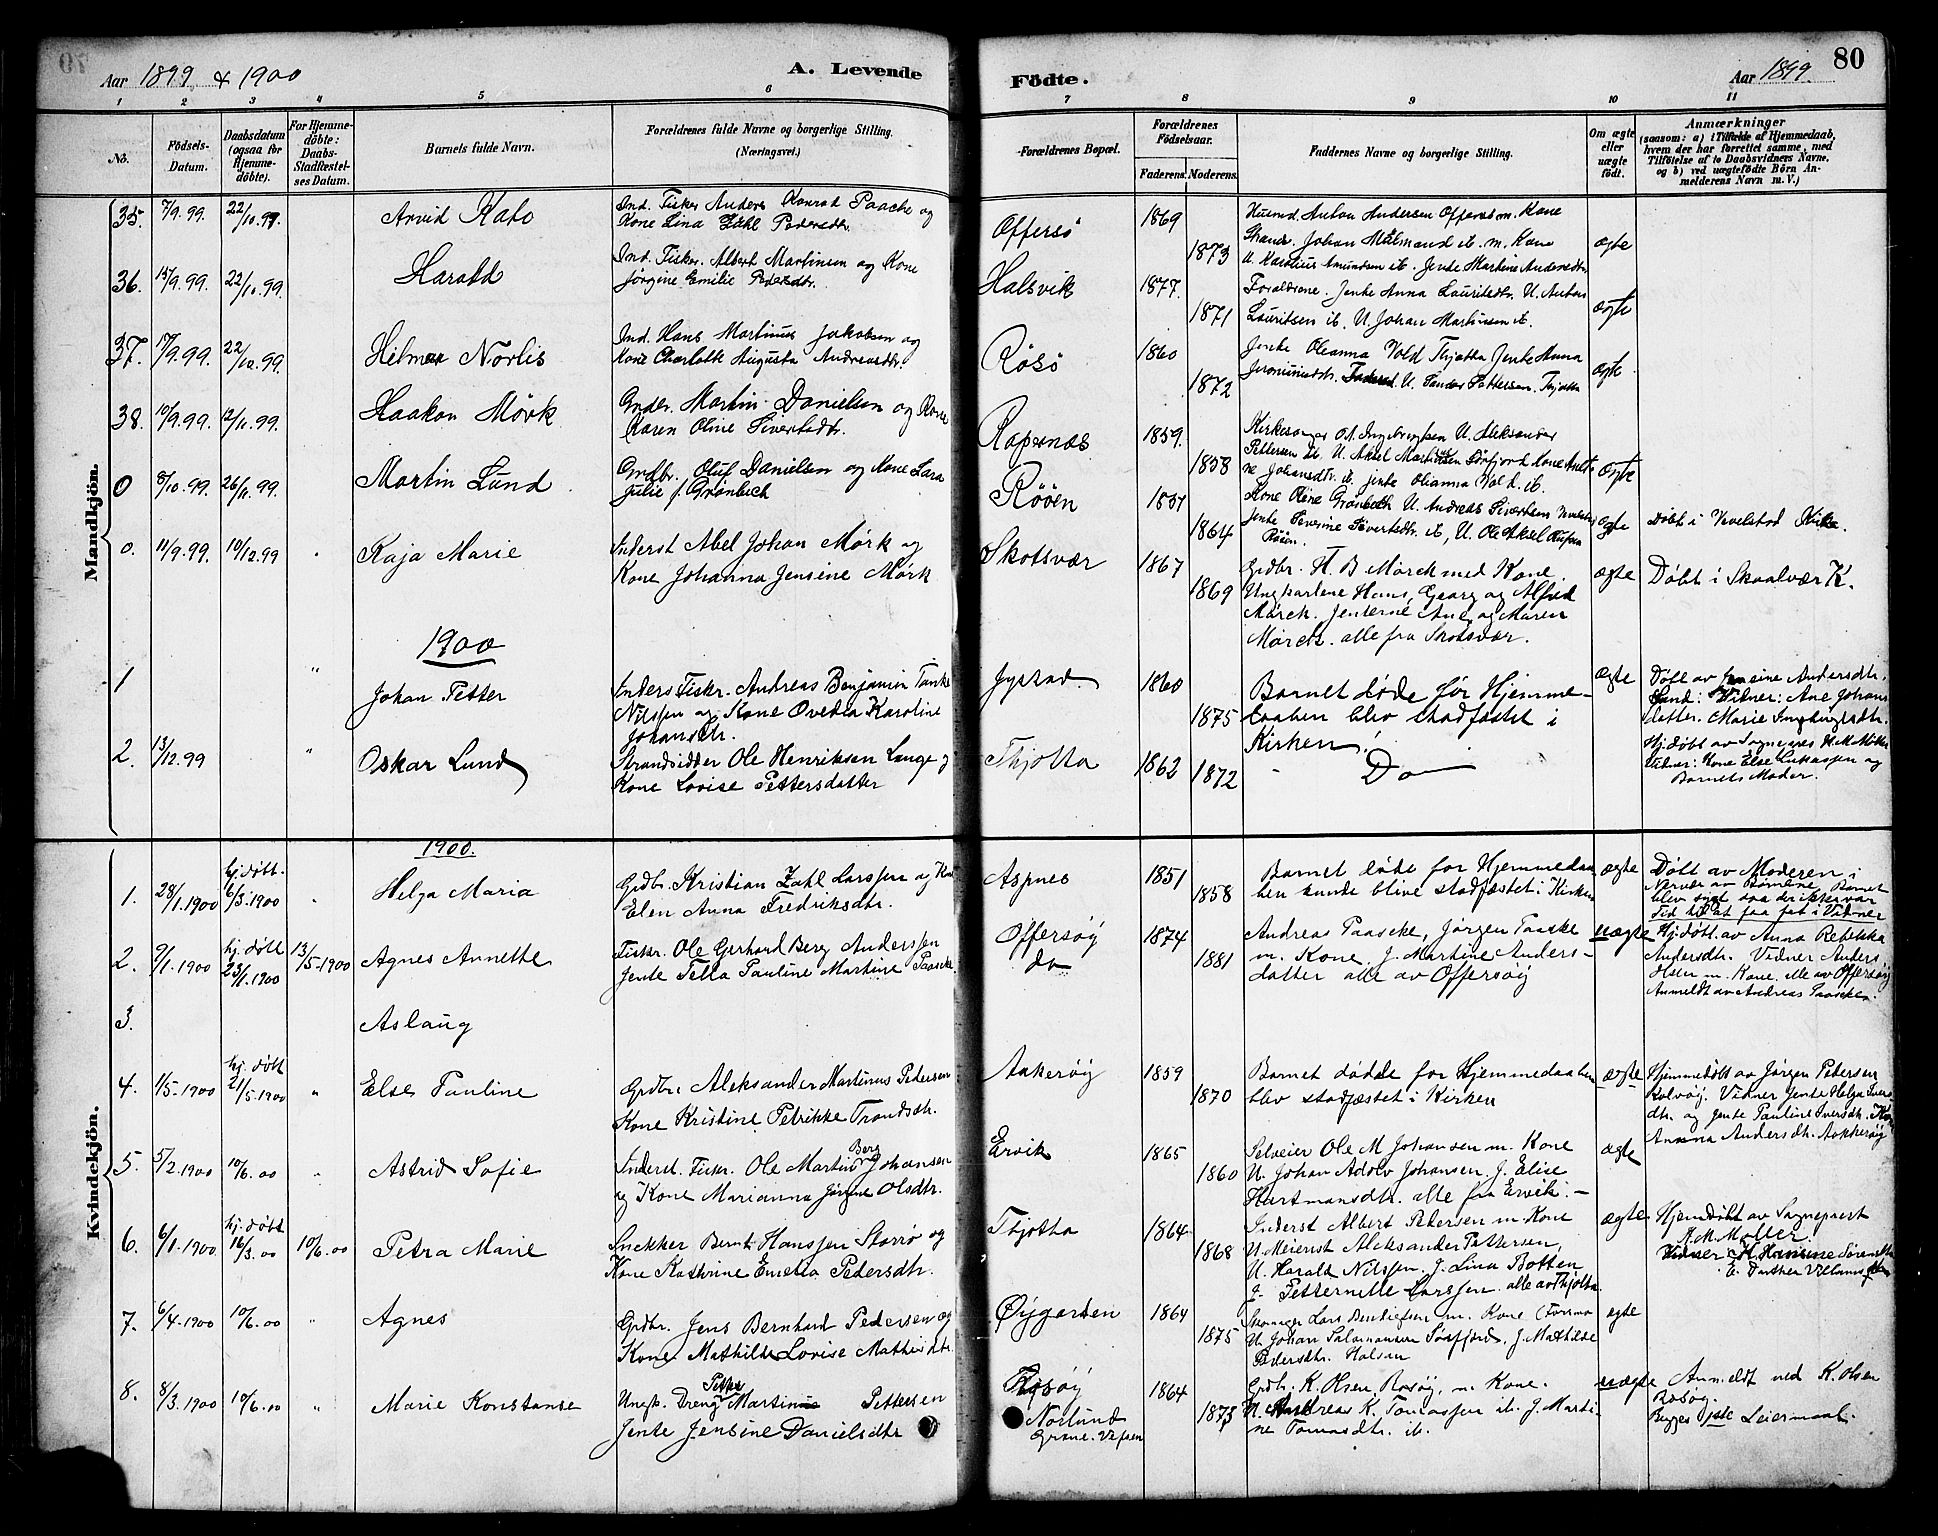 Aar 1899 & 1900
A. Levende
Födte.
Aar 1899.
80
1 2 3 4 5 6 7 8 9 10 11
No.
Födsels-Datum.
Daabsdatum (ogsaa for Hjemme-döbte).
For Hjemme-döbte: Daabs-Stadfæstel-ses Datum.
Barnets fulde Navn.
Forældrenes fulde Navne og borgerlige Stilling. (Næringsvei.)
Forældrenes Bopæl.
Forældrenes Födselsaar.
Faderens. Moderens.
Faddernes Navne og borgerlige Stilling.
Om ægte eller uægte födt.
Anmærkninger
(saasom: a) i Tilfælde af Hjemmedaab, hvem der har forrettet samme, med Tilföielse af to Daabsvidners Navne, og b) ved uægtefödte Börn An-melderens Navn m. V.)
Mandkjön.
35. 7/9.99. 22/10.99. Arvid Kato
Ind. Fisker Anders Konrad Paache og
Kone Lina Zahl Pedersdtr.
Offersø 1869 1873
Husmd. Anton Andersen Offersø m. Kone
Strands. Johan Halmand ib. m. Kone
U. Karolius Amundsen ib. Jente Martine Andersdtr.
ægte
36. 15/9.99. 22/10.99. Harald
Ind. Fisker. Albert Martinsen og Kone
Jørgine Emilie Pedersdtr.
Halsvik 1877. 1871
Forældrene. Jente Anna Lauritsdtr. U. Anton
Lauritsen ib. U. Johan Martinsen ib.
ægte
37. 17/9.99. 22/10.99. Hilmar Norlis
Ind. Hans Martinus Jakobsen og
Kone Charlotte Augusta Andreasdtr.
Røsø 1860 1872
Jente Oleanna Vold Thjøtta Jente Anna
Jeronimusdtr. U. Sander Pettersen. Thjøtta
ægte
38. 10/9.99. 12/11.99. Haakon Mørk
Inder. Martin Danielsen og Kone
Karen Oline Sivertsdtr.
Ragernæs 1859. 1858
Kirkesanger O. A. Ingebrigtsen U. Aleksander
Pettersen ib. U. Aksel Martinsen Sørfjord Kone Anet-
te Johansdtr. ib. jente Olianna Vold. ib.
ægte
0 8/10.99. 26/11.99. Martin Lund
Grdbr. Oluf Danielsen og Kone Lara
Julie f. Grønbech
Røøen 1864
Kone Oline Grønbech U. Andreas Sivertsen
Jente Severine Sivertsdtr. ib, U. Ole Aksel
Røøen.
ægte
Døbt i Vevelstad Kirke.
0. 11/9.99. 10/12.99 Kaja Marie
Inderst Abel Johan Mørk og
Kone Johanna Jensine Mørk
Skotsvær 1867 1869
Grdbr. H. B Mørch med Kone.
Ungkarlene Hans, Georg og Alfred
Mørch. Jenterne Ane og Maren
Mørch. alle fra Skotsvær.
ægte
Døbt i Skaalvær K.
1900
1 " Johan Petter
Inders Fiskr. Andreas Benjamin Tanke
Nilssen og Kone Ovedia Karoline
Johansdtr.
1860 1875
Barnet døde før Hjemme-
daaben blev stadfæstet i
Kirken!
ægte
Døbt av Jensine Andersdtr.
Sund: Vidner: Ane Johans
datter. Marie Ingebrigtsdtr.
2. 13/12.99 " Oskar Lund
Strandsidder Ole Henriksen Lange og
Kone Lovise Pettersdatter
Thjøtta 1862 1872
- Do -
Hj. døbt av Sognepres H. M. Møller
Vidner: Kone Else Lukassen og
Barnets Moder.
Kvindekjön.
1900.
1. 28/1.1900 hj. døbt. 6/3.1900 Helga Maria
Grdb. Kristian Zahl Larssen og Kone
Elen Anna Fredriksdtr.
Aspnes 1851 1858
Barnet døde før Hjemmedaa
ben kunde blive stadfæstet i Kirken
ægte
Døbt av Moderen i
Nærvær av Børnene. Barnet
blev sygt saa der ikke var
Tid til at faa fat i Vidner
2. 9/1.1900 hj. døbt 23/1.1900 13/5-1900 Agnes Annette
Fiskr. Ole Gerhard Berg Anderssen
Jente Tella Pauline Martine Paaske
Offersøy do 1874 1881
Andreas Paaske, Jørgen Paaske
m. Kone. J. Martine Anders-
datter alle av Offersøy
uægte
Hj. døbt. av Anna Rebekka
Andersdtr. Vidner Anders
Olsen m. Kone, alle av Offersøy
Anmeldt av Andreas Paaske.
3. Aslaug
4. 1/5-1900 hj. døbt 21/5.1900 " Else Pauline
Grdbr. Aleksander Martinus Pedersen
Kone Kristine Petrikke Trondsdtr.
Aakerøy 1859 1870
Barnet døde før Hjemmedaaben
blev stadfæstet i Kirken
ægte
Hjemmedøbt av Jørgen Pedersen
Kalvøy. Vidner Jente Helga Ivers
dtr. og Jente Pauline Iversdtr. Kone
Anna Andersdtr. Aakkerøy
5. 5/2.1900 10/6.00 Astrid Sofie
Inderst. Fiskr. Ole Martin Berg Johansen
og Kone Marianna Jørgine Olsdtr.
Ervik 1865 1860
Selveier Ole M Johansen m. Kone
U. Johan Adolv Johansen. J. Elise
Hartmansdtr. alle fra Ervik. -
ægte
6. 6/1.1900 hj. døbt 16/3.00 10/6.00 Petra Marie
Snekker Bernt Hanssen Storrø og
Kone Kathrine Emelia Pedersdtr.
Thjøtta 1864 1868
Inderst Albert Pedersen m. Kone
U. Meierist Aleksander Pettersen,
U. Harald Nilssen. J. Lina Botten
J. Petternelle Larssen. alle av Thjøtta
ægte
Hjemdøbt av Sognepræst
H. M. Møller.
Vidner: Hansine
E. Dorthea
7. 6/4.1900 10/6.00 " Agnes
Grdbr. Jens Bernhard Pedersen og
Kone Mathilde Lovise Mathisdtr.
Øygarden 1864 1875
Lars Bendigsen m. Kone
U. Johan Salamonsen Sørfjord, J. Mathilde
Pedersdtr. Halsan
ægte
8. 8/3.1900 10/6.00 " Marie Konstanse
Ungk. Dreng Petter Martinus Pettersen
Jente Jensine Danielsdtr
Rosøy
Norlund
Grane. Vefsen
1864 1873
Grdb. K. Olsen, Rosøy, m. Kone.
U. Andreas K. Tomassen ib. J. Marti-
ne Tomasdtr. ib.
uægte
Anmeldt ved K. Olsen
Rosøy.
Begges 1ste Leiermaal.